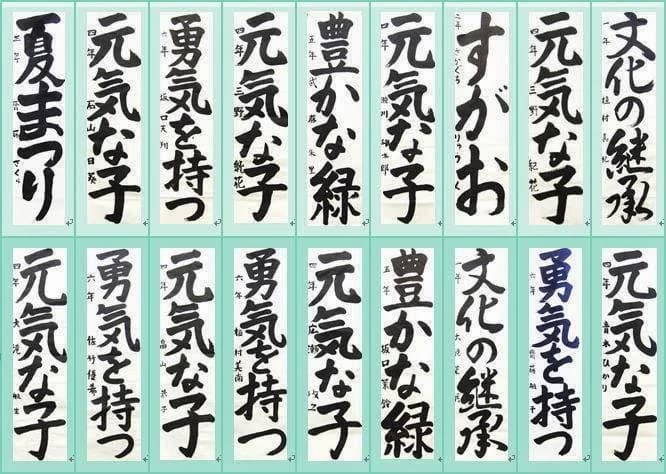 文化の継承
一年 植村
元気な子
四年 三野 紀花
すがお
二年 さかぐち
元気な子
四年 三野
豊かな緑
五年 武藤
元気な子
四年
勇気を持つ
六年 坂口天翔
元気な子
四年 石山日葵
夏まつり
三年
元気な子
四年 青木ひかり
勇気を持つ
六年
文化の継承
一年
豊かな緑
五年 坂口
元気な子
四年 広瀬
勇気を持つ
六年 植村美南
元気な子
四年 畠山
勇気を持つ
六年 佐竹
元気な子
四年 大滝